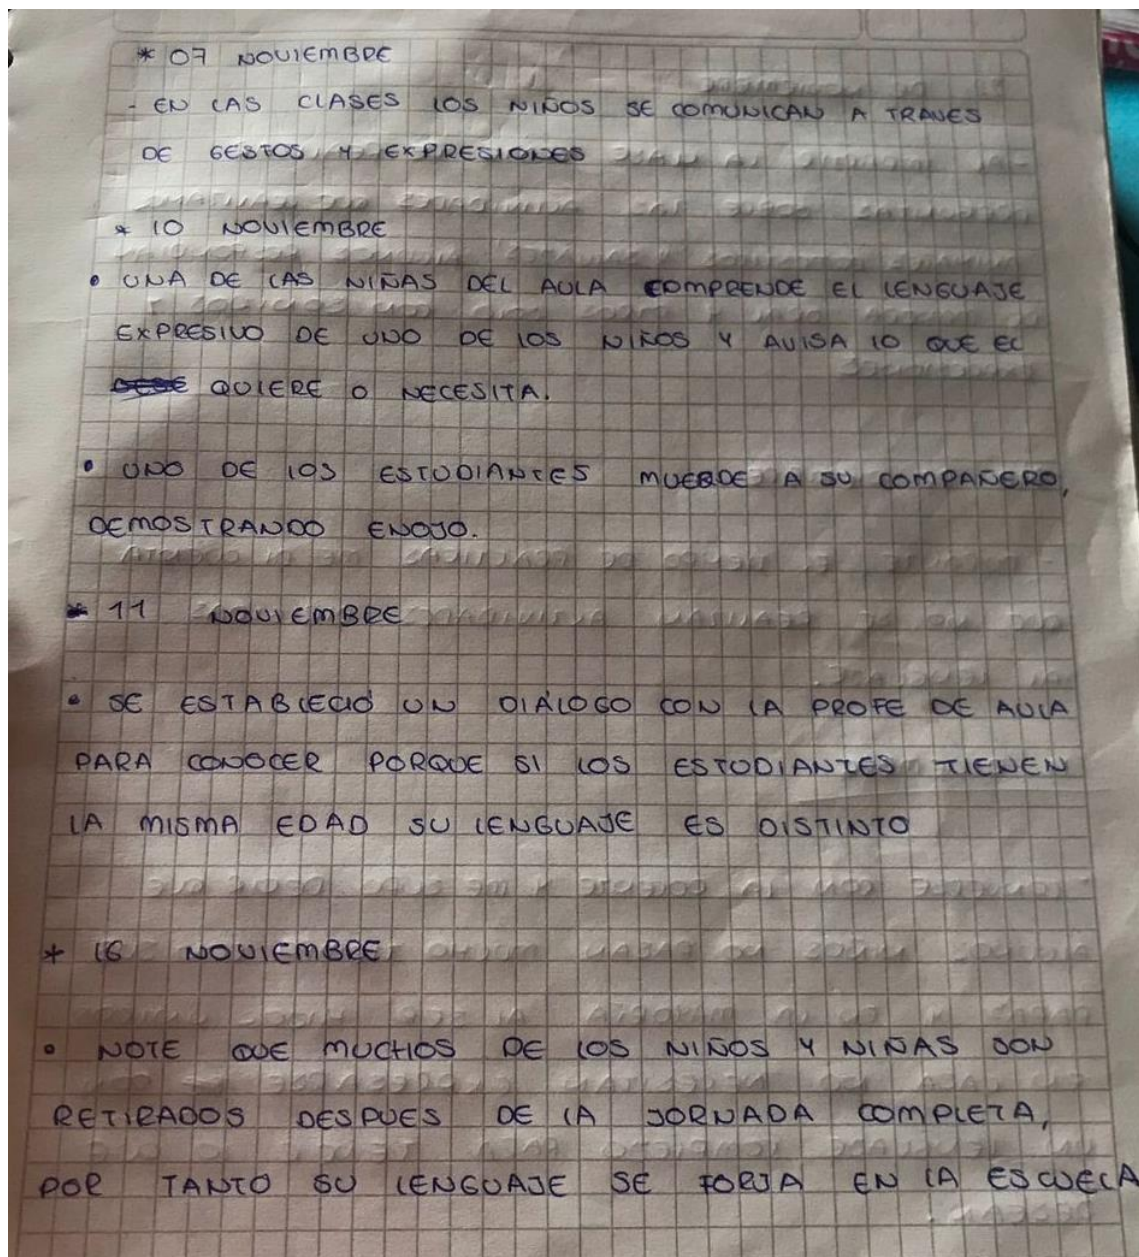 * 07 NOVIEMBRE
- EN LAS CLASES LOS NIÑOS SE COMUNICAN A TRAVES
DE GESTOS Y EXPRESIONES
* 10 NOVIEMBRE
• UNA DE LAS NIÑAS DEL AULA COMPRENDE EL LENGUAJE
EXPRESIVO DE UNO DE LOS NIÑOS Y AVISA LO QUE EL
QUIERE O NECESITA.
• UNO DE LOS ESTUDIANTES MUERDE A SU COMPAÑERO,
DEMOSTRANDO ENOJO.
* 11 NOVIEMBRE
• SE ESTABLECIÓ UN DIÁLOGO CON LA PROFE DE AULA
PARA CONOCER PORQUE SI LOS ESTUDIANTES TIENEN
LA MISMA EDAD SU LENGUAJE ES DISTINTO
* 16 NOVIEMBRE
• NOTE QUE MUCHOS DE LOS NIÑOS Y NIÑAS SON
RETIRADOS DESPUES DE LA JORNADA COMPLETA,
POR TANTO SU LENGUAJE SE FORJA EN LA ESCUELA